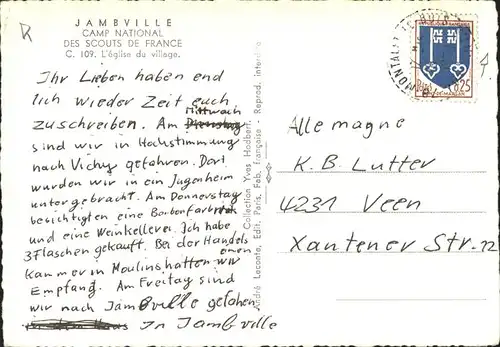 JAMBVILLE
CAMP NATIONAL
DES SCOUTS DE FRANCE
C. 109. L'église du village.
Ihr Lieben haben end
lich wieder Zeit euch
zuschreiben. Am Mittwoch
sind wir in Hochstimmung
nach Vichy gefahren. Dort
wurden wir in ein Jugenheim
untergebracht. Am Donnerstag
besichtigten eine Bonbonfabrik
und eine Weinkellerei. Ich habe
3 Flaschen gekauft. Bei der Handels
kammer in Moulins hatten wir einen
Empfang. Am Freitag sind
wir nach Jambville gefahren
In Jambville
André Leconte, Edit. Paris, Fab. Française - Reprod. interdite
Collection Yves Hodbert
MONTALET LE BOIS
0,25
MONT-DE-MARSAN
Allemagne
K.B. Lutter
4231 Veen
Xantener Str. 12